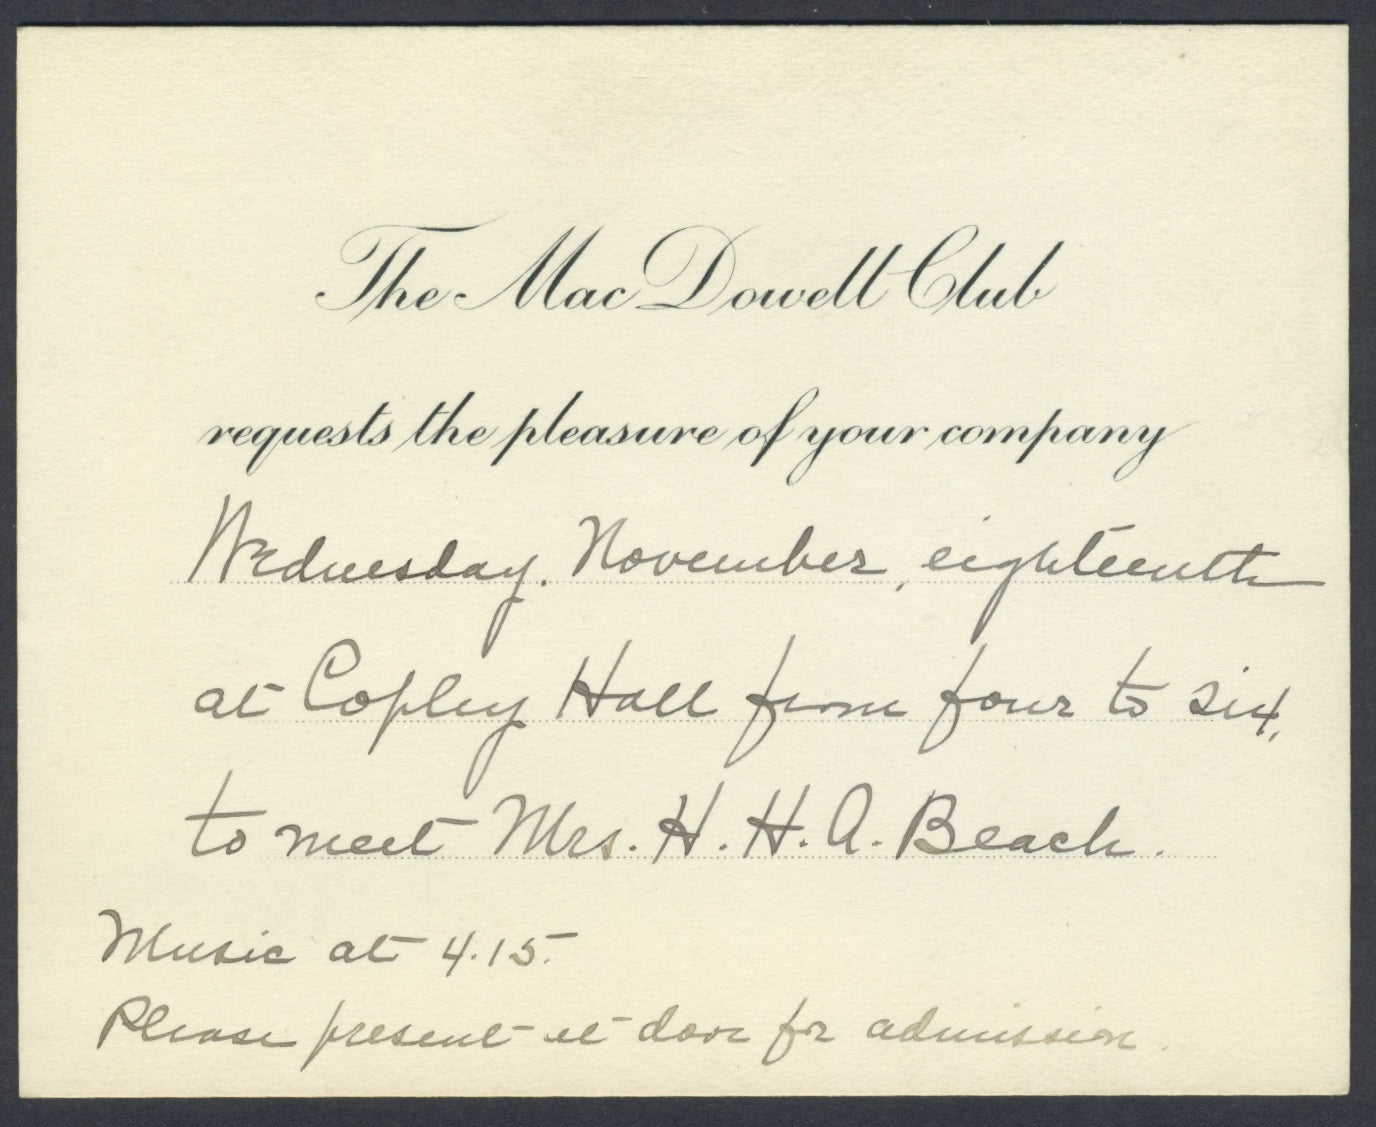 The MacDowell Club
requests the pleasure of your company
Wednesday, November, eighteenth
at Copley Hall from four to six,
to meet Mrs. H. H. A. Beach.
Music at 4.15.
Please present at door for admission.